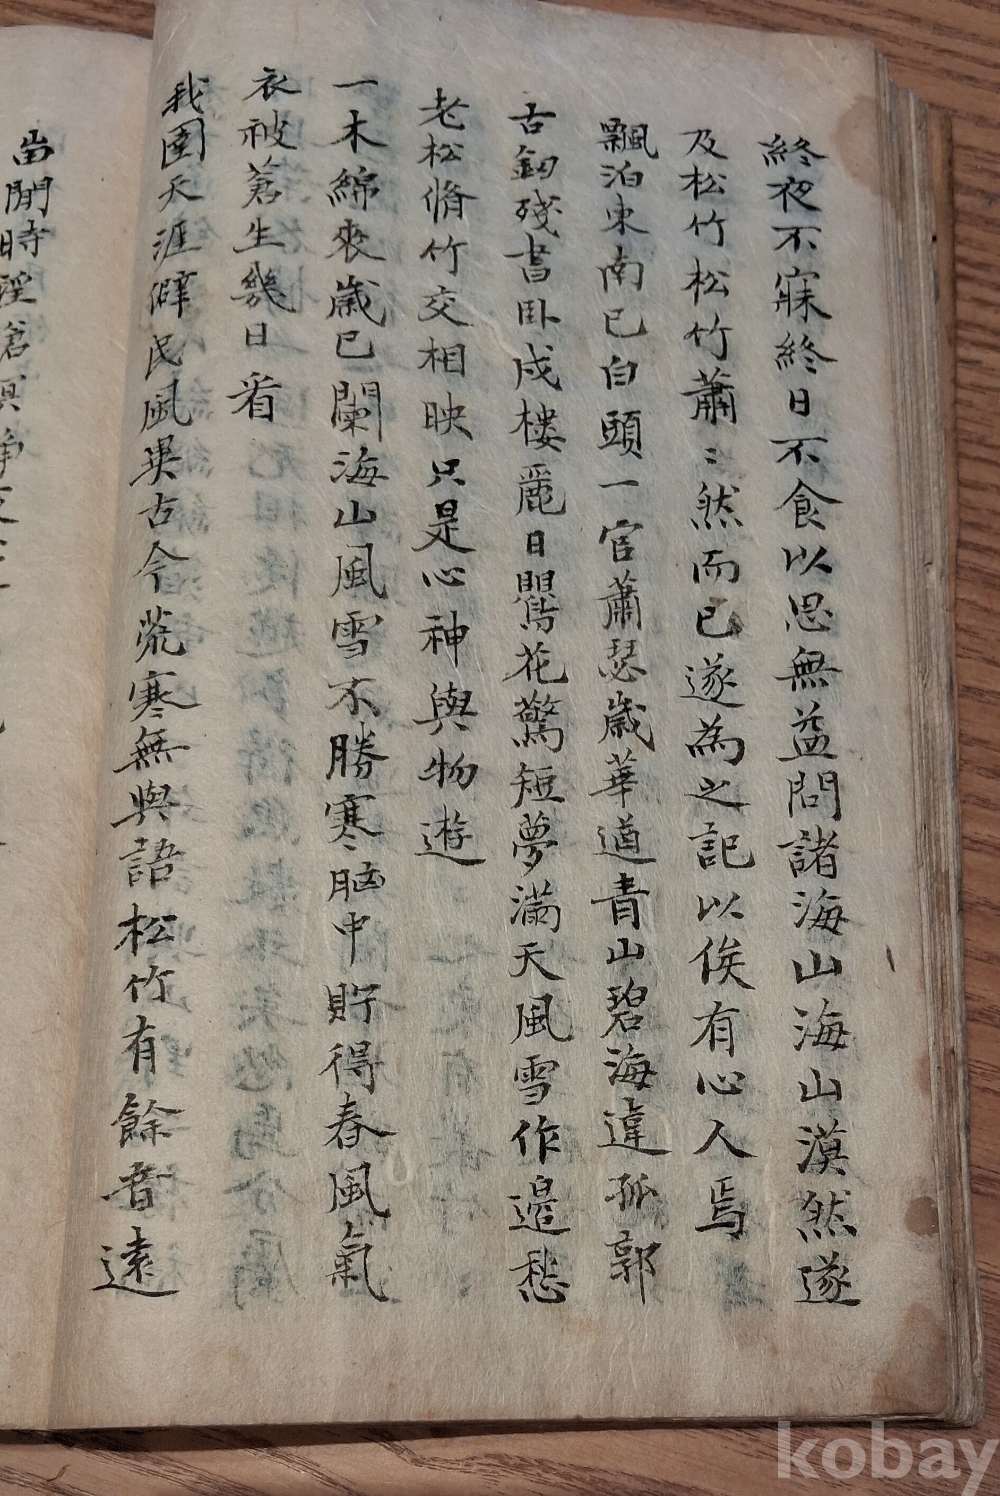 終夜不寐終日不食以思無益問諸海山海山漠然遂
及松竹松竹蕭〻然而已遂為之記以俟有心人焉
飄泊東南已白頭一官蕭瑟歲華遒青山碧海違孤郭
古釰殘書臥戍樓麗日鸎花驚短夢滿天風雪作邊愁
老松脩竹交相映只是心神與物遊
一木綿來歲已闌海山風雪不勝寒脑中貯得春風氣
衣被蒼生幾日看
我圉天涯僻民風異古今荒寒無與語松竹有餘音遠
留閒時淫蒼冥
kobay